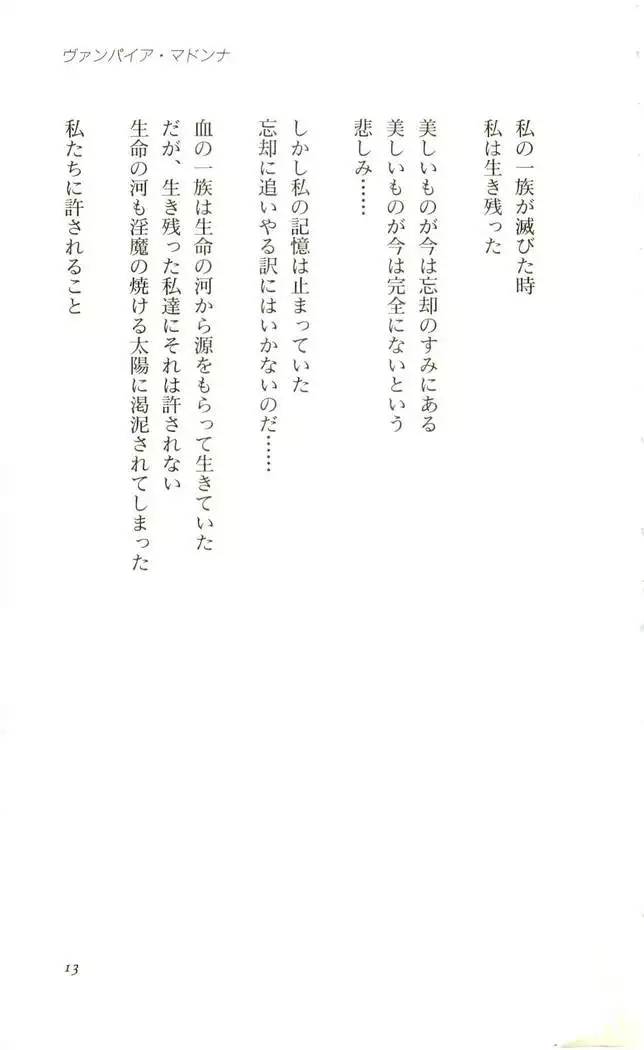 ヴァンパイア・マドンナ
私の一族が滅びた時
私は生き残った
美しいものが今は忘却のすみにある
美しいものが今は完全にないという
悲しみ……
しかし私の記憶は止まっていた
忘却に追いやる訳にはいかないのだ……
血の一族は生命の河から源をもらって生きていた
だが、生き残った私達にそれは許されない
生命の河も淫魔の焼ける太陽に渇泥されてしまった
私たちに許されること
13